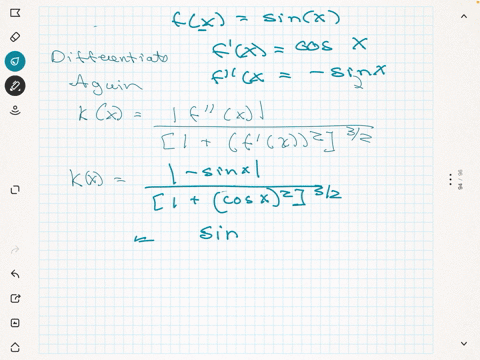 f(x) = sin(x)
Differentiate f'(x) = cos x
Again f''(x = - sin x
K(x) = |f''(x)| / [1 + (f'(x))²]^3/2
K(x) = |-sin x| / [1 + (cos x)²]^3/2
= sin